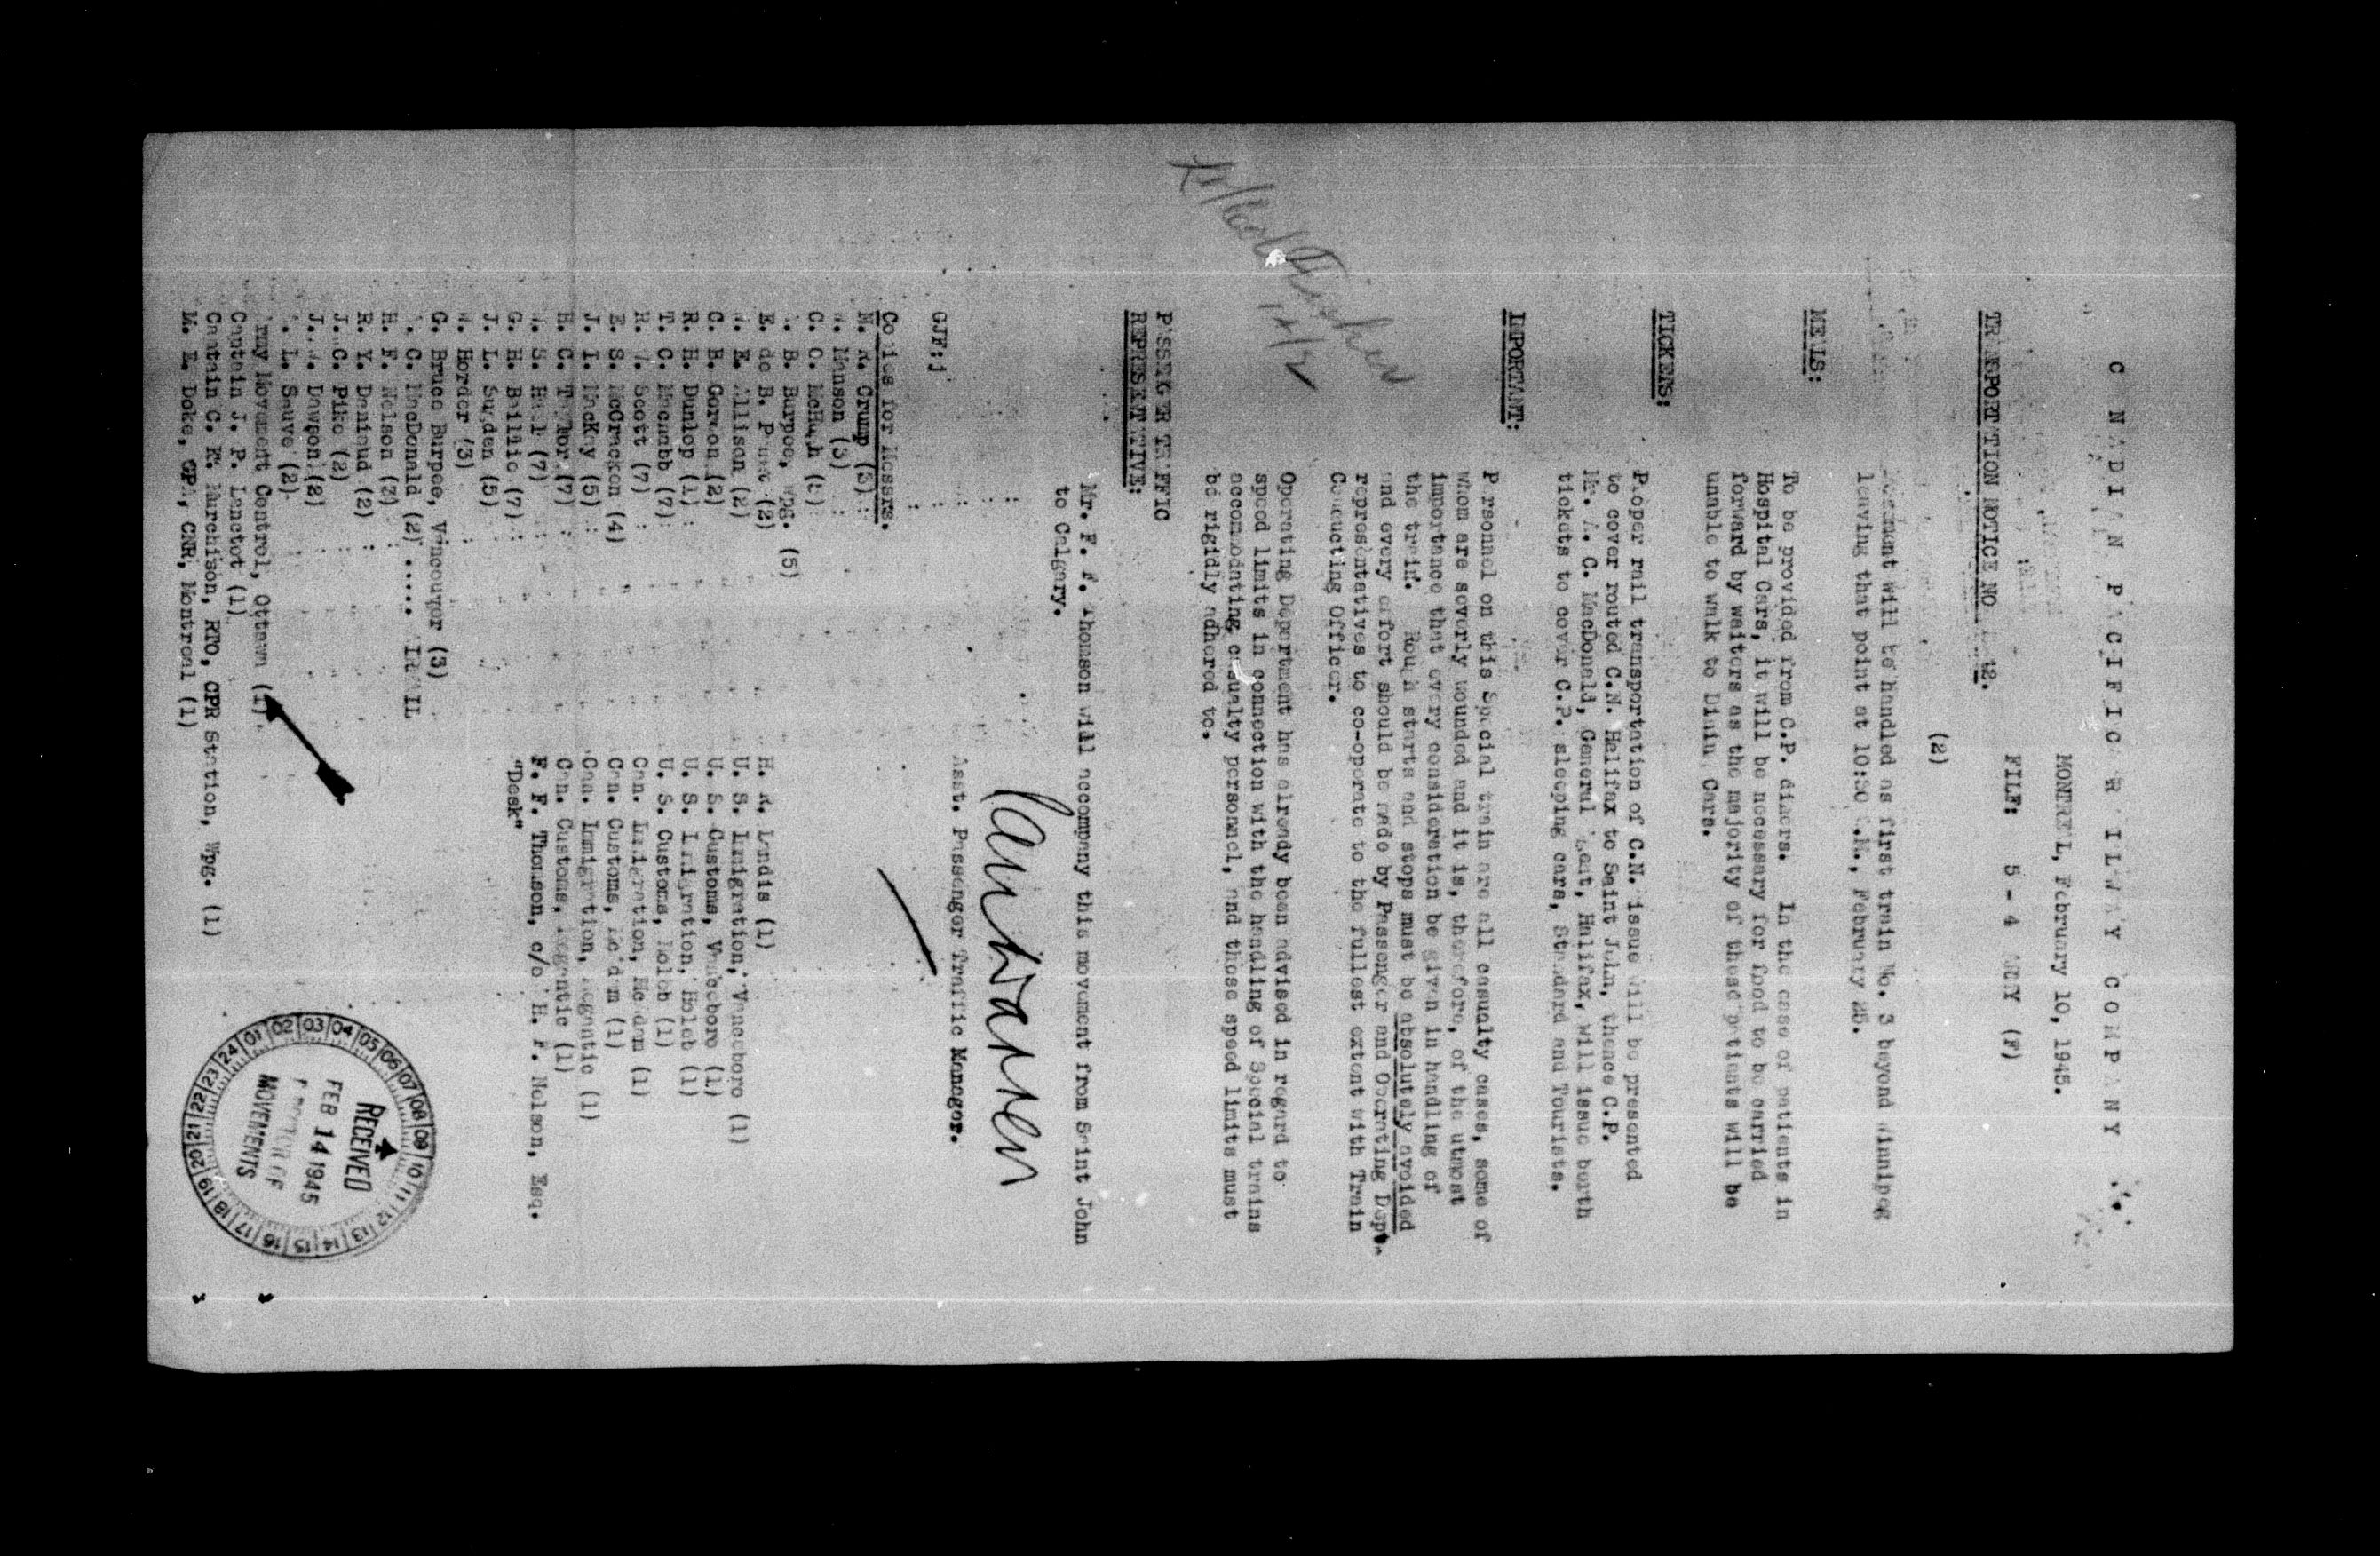 CANADIAN PACIFIC RAILWAY COMPANY
MONTREAL, February 10, 1945.
FILE: 5 - 4 ARMY (F)
TRANSPORTATION NOTICE NO 42.
(2)
will be handled as first train No. 3 beyond Winnipeg
leaving that point at 10:30 .M., February 25.
MEALS:
To be provided from C.P. diners. In the case of patients in
Hospital Cars, it will be necessary for food to be carried
forward by waiters as the majority of these patients will be
unable to walk to Dining Cars.
TICKETS:
Proper rail transportation of C.N. issue will be presented
to cover routed C.N. Halifax to Saint John, thence C.P.
Mr. A. C. MacDonald, General Agent, Halifax, will issue berth
tickets to cover C.P. sleeping cars, Standard and Tourists.
IMPORTANT:
Personnel on this Special train are all casualty cases, some of
whom are severly wounded and it is, therefore, of the utmost
importance that every consideration be given in handling of
the train. Rough starts and stops must be absolutely avoided
and every effort should be made by Passenger and Operating Dept.
representatives to co-operate to the fullest extent with Train
Conducting Officer.
Operating Department has already been advised in regard to
speed limits in connection with the handling of Special trains
accommodating casualty personnel, and those speed limits must
be rigidly adhered to.
PASSENGER TRAFFIC
REPRESENTATIVE:
Mr. F. F. Thomson will accompany this movement from Saint John
to Calgary.
14/2
Asst. Passenger Traffic Manager.
GJF:j
Copies for Messrs.
N. R. Crump (3)
W. Manson (3)
C. O. McHugh (5)
. B. Burpee, Wpg. (5)
E. de B. (2)
. E. Allison (2)
C. B. Gordon (2)
R. H. Dunlop (1)
T. C. Macnabb (7)
R. . Scott (7)
E. S. McCracken (4)
J. I. MacKay (5)
H. C. Taylor (7)
. S. Hall (7)
G. H. Baillie (7)
J. L. Sugden (5)
W. Horder (3)
G. Bruce Burpee, Vancouver (3)
. C. MacDonald (2) ..... AIRMAIL
H. F. Nelson (3)
R. Y. Daniaud (2)
J. C. Pike (2)
J. . Dawson (2)
. L. Sauve (2)
Army Movement Control, Ottawa (1)
Captain J. P. Lanctot (1)
Captain C. E. Murchison, RTO, CPR Station, Wpg. (1)
M. E. Doke, GPA, CNR, Montreal (1)
H. R. Landis (1)
U. S. Immigration, Vanceboro (1)
U. S. Customs, Vanceboro (1)
U. S. Immigration, Holeb (1)
U. S. Customs, Holeb (1)
Can. Immigration, McAdam (1)
Can. Customs, McAdam (1)
Can. Immigration, Megantic (1)
Can. Customs, Megantic (1)
F. F. Thomson, c/o H. F. Nelson, Esq.
"Desk"
01 02 03 04 05 06 07 08 09 10 11 12 13 14 15 16 17 18 19 20 21 22 23 24
RECEIVED
FEB 14 1945
DIRECTOR OF
MOVEMENTS